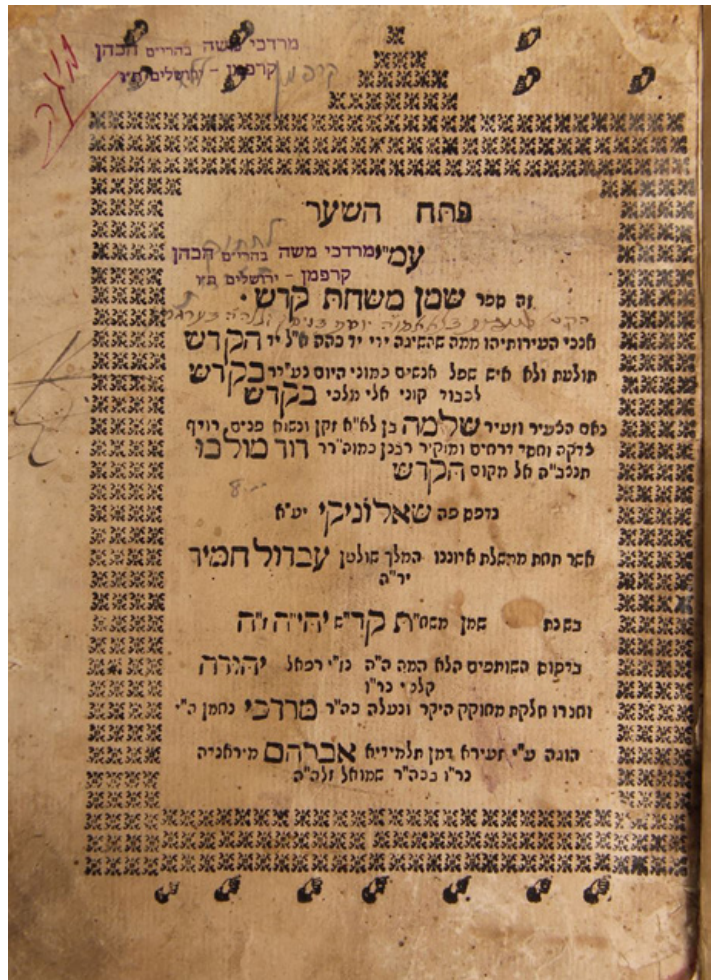 מרדכי משה בהרי״ם הכהן
קרפמן - ירושלים ת״ו
פתח השער
עמ״י
מרדכי משה בהרי״ם הכהן
קרפמן - ירושלים ת״ו
זה ספר שמן משחת קדש •
אנכי הצעיר ותיהו ממה שהשיגה ידי יד כהה א״ל יד הקדש
תולעת ולא איש שפל אנשים כמוני היום בע״יר בקדש
לכבוד קוני אלי מלכי בקדש
נאם הצעיר וזעיר שלמה בן לא״א זקן ונשוא פנים רודף
צדקה וחסד דרחים ומוקיר רבנן כמוה״רר דוד מולכו
תנצב״ה אל מקום הקדש
נדפס פה שאלוניקי יע״א
אשר תחת ממשלת אדוננו המלך שולטן עבדול חמיד
יר״ה
בשנת שמן משח״ת קד״ש יהי״ה ז״ה
בדפוס השותפים הלא המה ה״ה בו״י רפאל יהודה
קלעי נר״ו
וחברו חלקת מחוקק היקר ונעלה כה״ר מרדכי נחמן ה״י
הוגה ע״י זעירא דמן תלמידיא אברהם מיראנדה
נר״ו בכה״ר שמואל זלה״ה